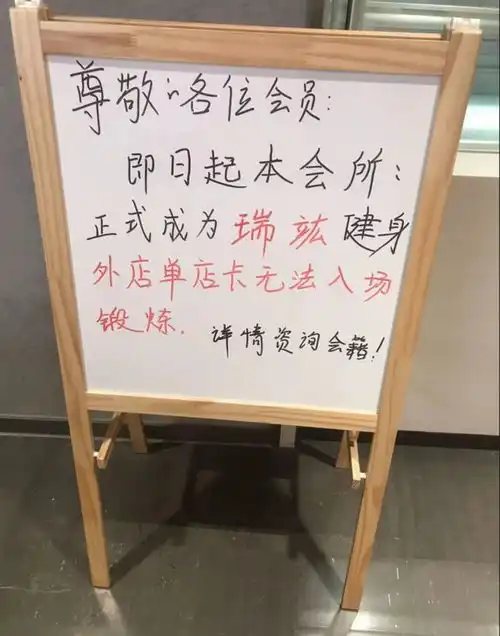 尊敬的各位会员:
即日起本会所:
正式成为瑞竑健身
外店单店卡无法入场
锻炼. 详情资询会籍!